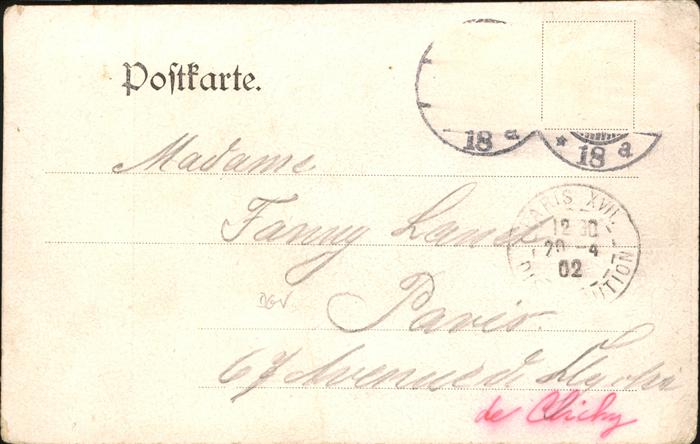 Postkarte.
18 a
* 18 a
Madame
Fanny
PARIS XVII
12 30
20 -4
02
DISTRIBUTION
Paris.
67 Avenue d
de Clichy